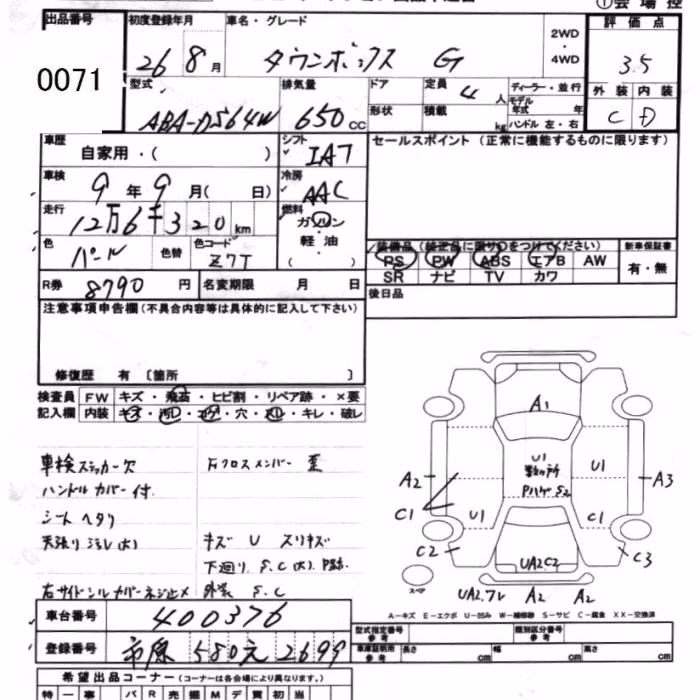 ① 会 場 控
出品番号 初度登録年月 車名・グレード 2WD ・ 4WD 評 価 点
0071 26 8月 タウンボックス G 3.5
型式 排気量 ドア 定員 4 人 ディーラー・並行 外 装 内 装
ABA-DS64W 650 cc 形状 積載 kg モデル年式 年 ハンドル 左・右 C D
車歴 自家用・( ) シフト IAT セールスポイント (正常に機能するものに限ります)
車検 9年 9月( 日) 冷房 AAC
走行 12万6千320km 燃料 ガソリン
色 パール 色替 色コード Z7T 軽 油 ( )
装備品 (純正品に限り○をつけてください) 新車保証書
PS PW ABS エアB AW 有・無
SR ナビ TV カワ
R券 8790 円 名変期限 月 日 後日品
注意事項申告欄(不具合内容等は具体的に記入して下さい)
修復歴 有 〔箇所 〕
検査員 FW キズ・飛石・ヒビ割・リペア跡・×要
記入欄 内装 キズ・汚れ・コゲ・穴・スレ・キレ・破レ
車検ステッカー欠 Fクロスメンバー 歪
ハンドルカバー付
シートヘタリ
天張リシミレ(大) キズ U スリキズ
下廻リ S.C(大)
右サイドシルカバーネジ止メ 外装 S.C
A1
U1 数ヶ所 PハゲS2
U1
A2 A3
C1 U1 C1
C2 UA2C2 C3
スペア UA2.7L A2 A2
A－キズ E－エクボ U－凹み W－補修跡 S－サビ C－腐食 XX－交換済
車台番号 400376
登録番号 市原 580 え 2699
型式指定番号 参考 類別区分番号 参考
車庫証明用 参考 長さ cm 幅 cm 高さ cm
希望出品コーナー(コーナーは各会場により異なります。)
特 一 事 バ R 売 掘 M デ 質 初 当